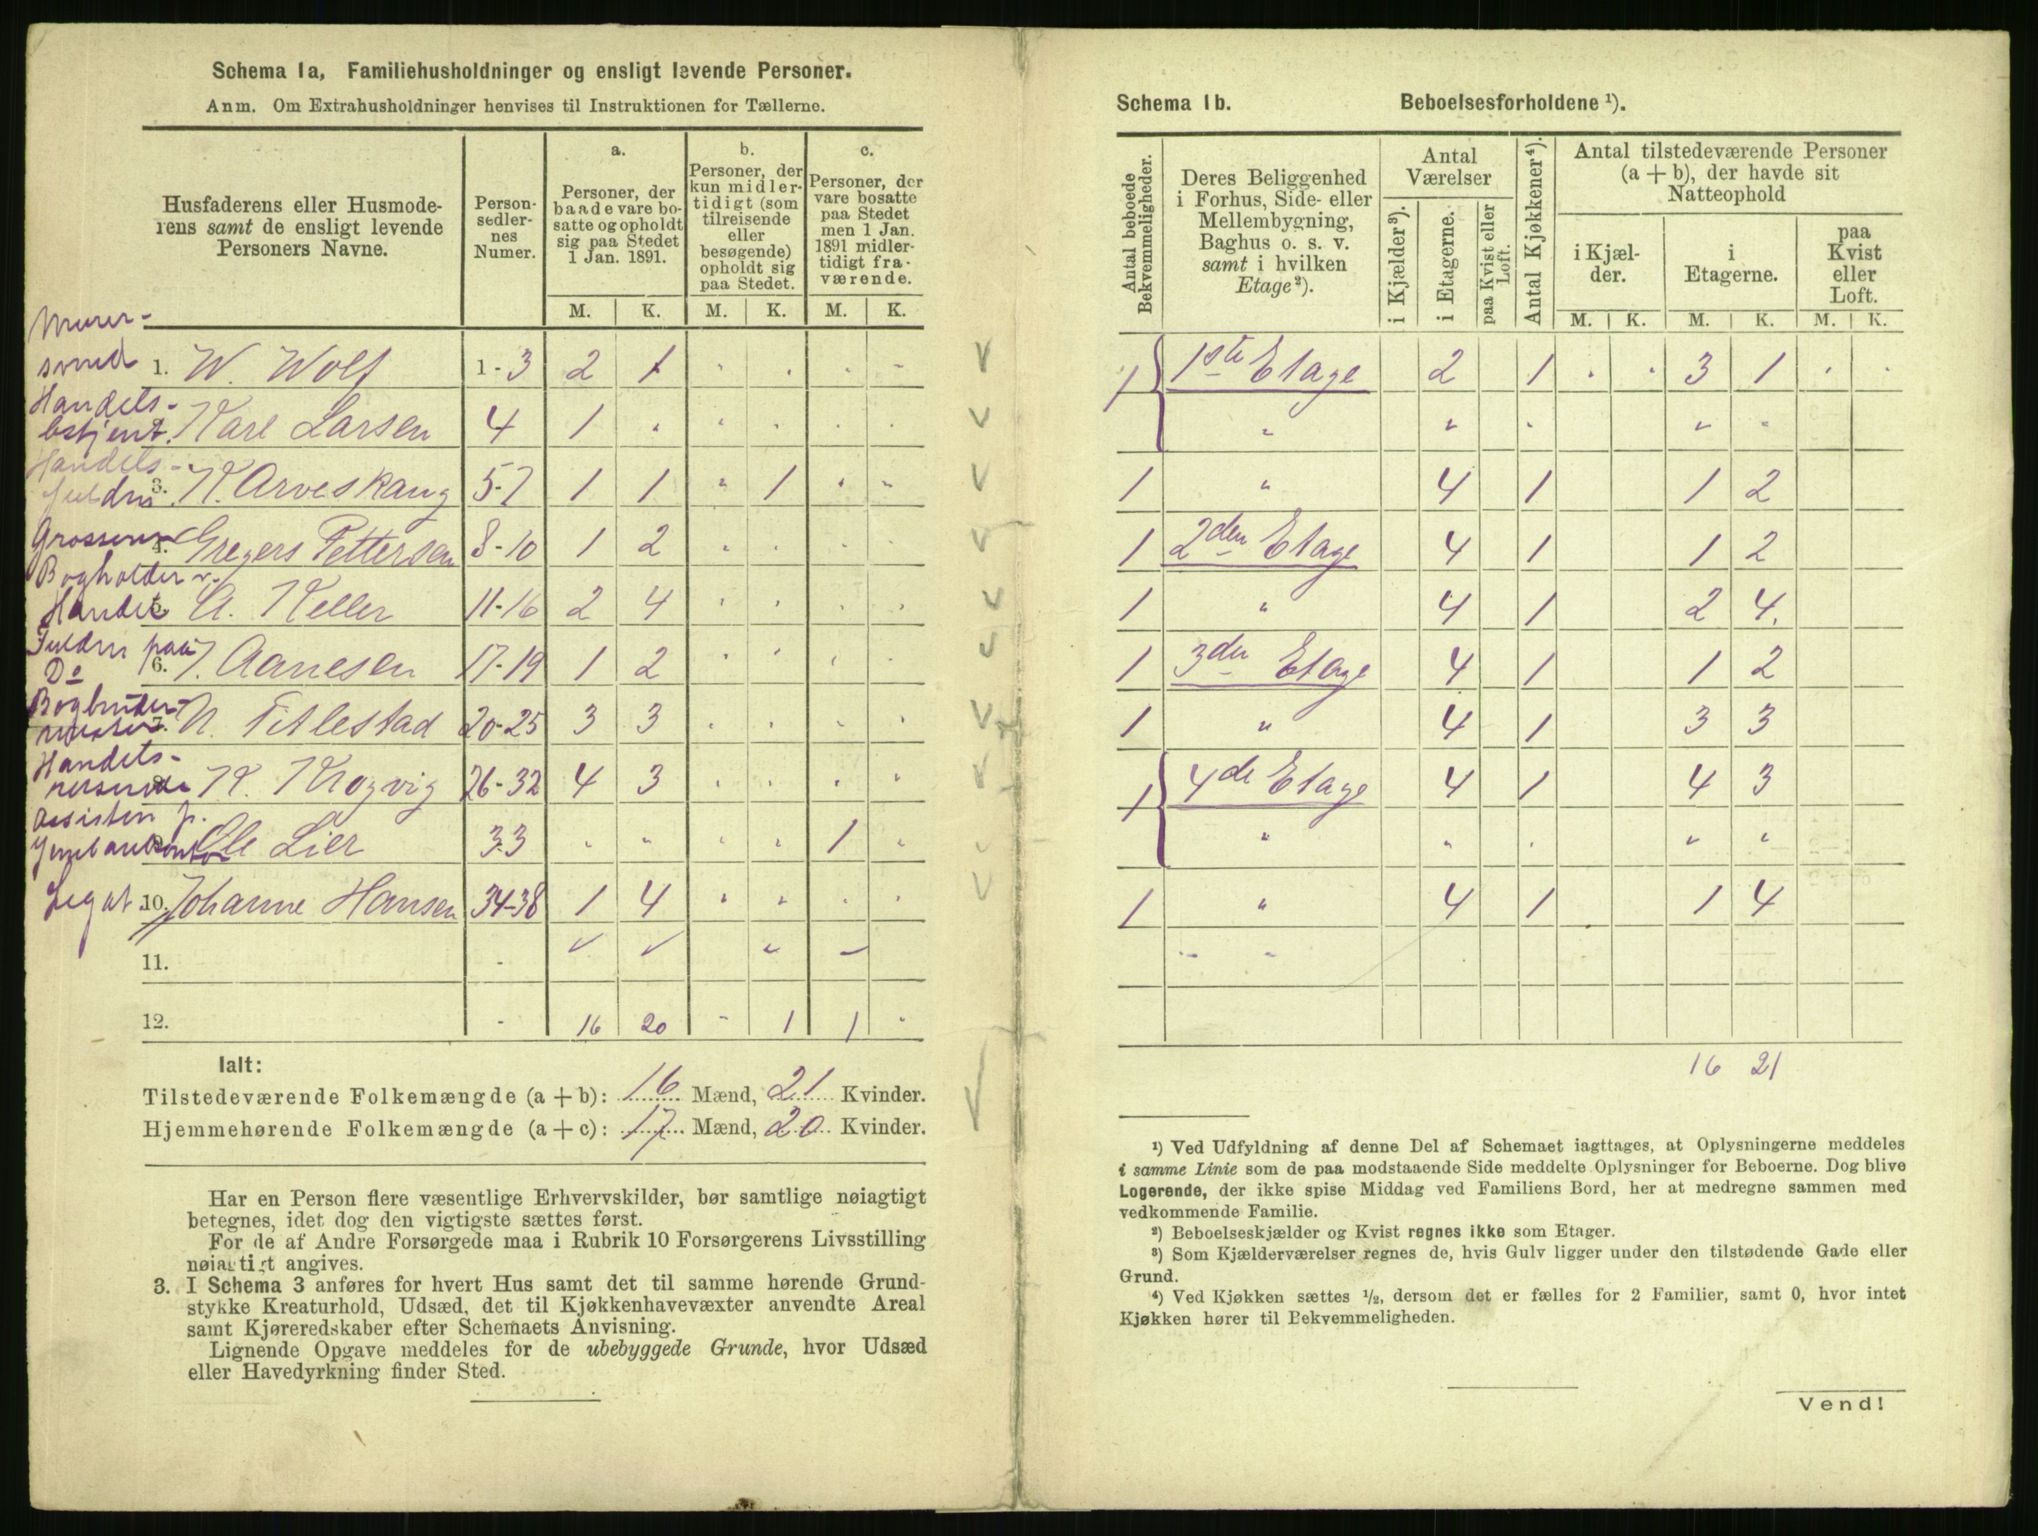 Schema 1a, Familiehusholdninger og ensligt levende Personer.
Anm. Om Extrahusholdninger henvises til Instruktionen for Tællerne.
Husfaderens eller Husmoderens samt de ensligt levende Personers Navne.
Personsedlernes Numer.
a.
Personer, der baade vare bosatte og opholdt sig paa Stedet 1 Jan. 1891.
b.
Personer, der kun midlertidigt (som tilreisende eller besøgende) opholdt sig paa Stedet.
c.
Personer, der vare bosatte paa Stedet men 1 Jan. 1891 midlertidigt fraværende.
M. K. M. K. M. K.
Murersvend 1. W. Wolf 1-3 2 1
Handelsbetjent 2. Karl Larsen 4 1
Handels- 3. K. Arveskaug 5-7 1 1 1
4. Gregers Pettersen 8-10 1 2
Bogholder v. Handel 5. A. Keller 11-16 2 4
Fuldm paa Do 6. J. Aanesen 17-19 1 2
7. N. Titlestad 20-25 3 3
Handels- 8. K. Krogvig 26-32 4 3
Assistent p. 9. Ole Lier 33 1
Legat 10. Johanne Hansen 34-38 1 4
11. -
12. - 16 20 1 1
Ialt:
Tilstedeværende Folkemængde (a + b): 16 Mænd, 21 Kvinder.
Hjemmehørende Folkemængde (a + c): 17 Mænd, 20 Kvinder.
Har en Person flere væsentlige Erhvervskilder, bør samtlige nøiagtigt
betegnes, idet dog den vigtigste sættes først.
For de af Andre Forsørgede maa i Rubrik 10 Forsørgerens Livsstilling
nøiagtigt angives.
3. I Schema 3 anføres for hvert Hus samt det til samme hørende Grund-
stykke Kreaturhold, Udsæd, det til Kjøkkenhavevæxter anvendte Areal
samt Kjøreredskaber efter Schemaets Anvisning.
Lignende Opgave meddeles for de ubebyggede Grunde, hvor Udsæd
eller Havedyrkning finder Sted.
Schema 1b. Beboelsesforholdene ¹).
Antal beboede Bekvemmeligheder.
Deres Beliggenhed i Forhus, Side- eller Mellembygning, Baghus o. s. v. samt i hvilken Etage²).
Antal Værelser
i Kjælder³).
i Etagerne.
paa Kvist eller Loft.
Antal Kjøkkener⁴).
Antal tilstedeværende Personer (a + b), der havde sit Natteophold
i Kjælder.
i Etagerne.
paa Kvist eller Loft.
M. K. M. K. M. K.
1 1ste Etage 2 1 3 1
" " " " "
1 " 4 1 1 2
1 2den Etage 4 1 1 2
1 " 4 1 2 4
1 3die Etage 4 1 1 2
1 " 4 1 3 3
1 4de Etage 4 1 4 3
" " " " "
1 " 4 1 1 4
16 21
¹) Ved Udfyldning af denne Del af Schemaet iagttages, at Oplysningerne meddeles
i samme Linie som de paa modstaaende Side meddelte Oplysninger for Beboerne. Dog blive
Logerende, der ikke spise Middag ved Familiens Bord, her at medregne sammen med
vedkommende Familie.
²) Beboelseskjælder og Kvist regnes ikke som Etager.
³) Som Kjælderværelser regnes de, hvis Gulv ligger under den tilstødende Gade eller
Grund.
⁴) Ved Kjøkken sættes ½, dersom det er fælles for 2 Familier, samt 0, hvor intet
Kjøkken hører til Bekvemmeligheden.
Vend!